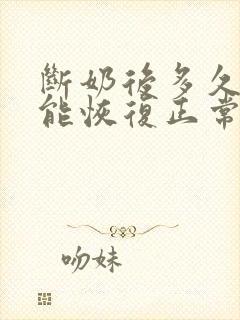 斷奶後多久
能恢復正常
吻妹